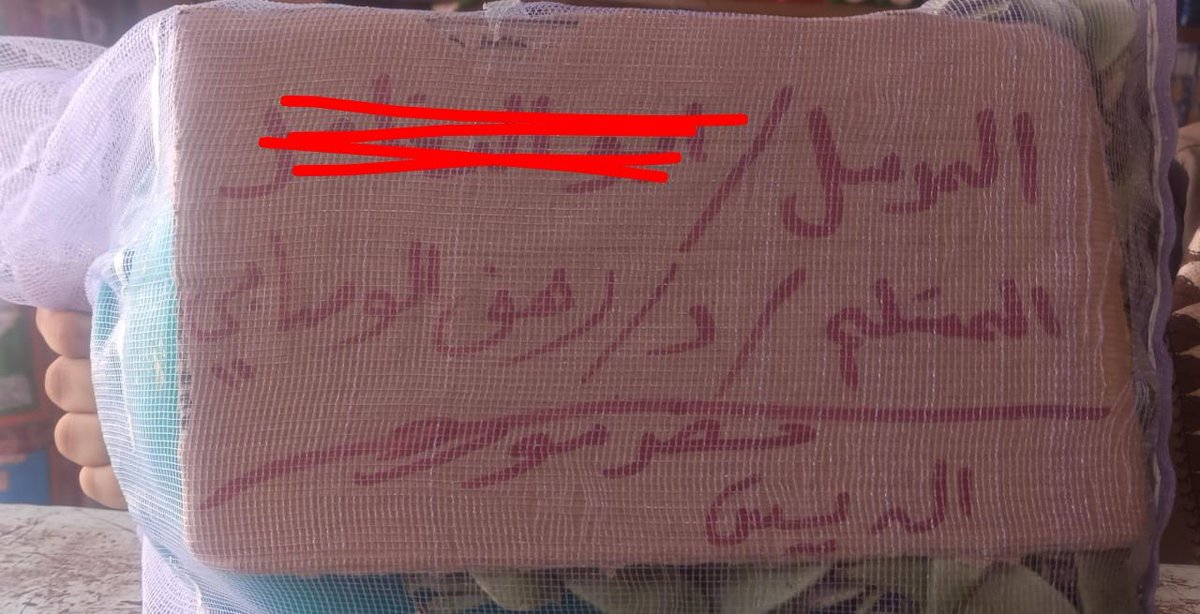 المرسل /
المستلم / د / رفيق الوصابي
حضرموت
الديس